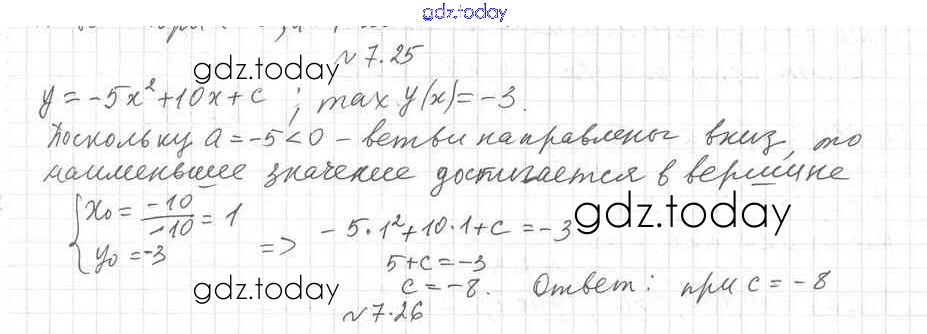 gdz.today
№ 7.25
gdz.today
y = -5x² + 10x + c ; max y(x) = -3.
Поскольку a = -5 < 0 - ветви направлены вниз, то
наименьшее значение достигается в вершине
{ x₀ = -10/-10 = 1
y₀ = -3
=> -5·1² + 10·1 + c = -3
gdz.today
5 + c = -3
gdz.today
c = -8. Ответ: при c = -8
№ 7.26